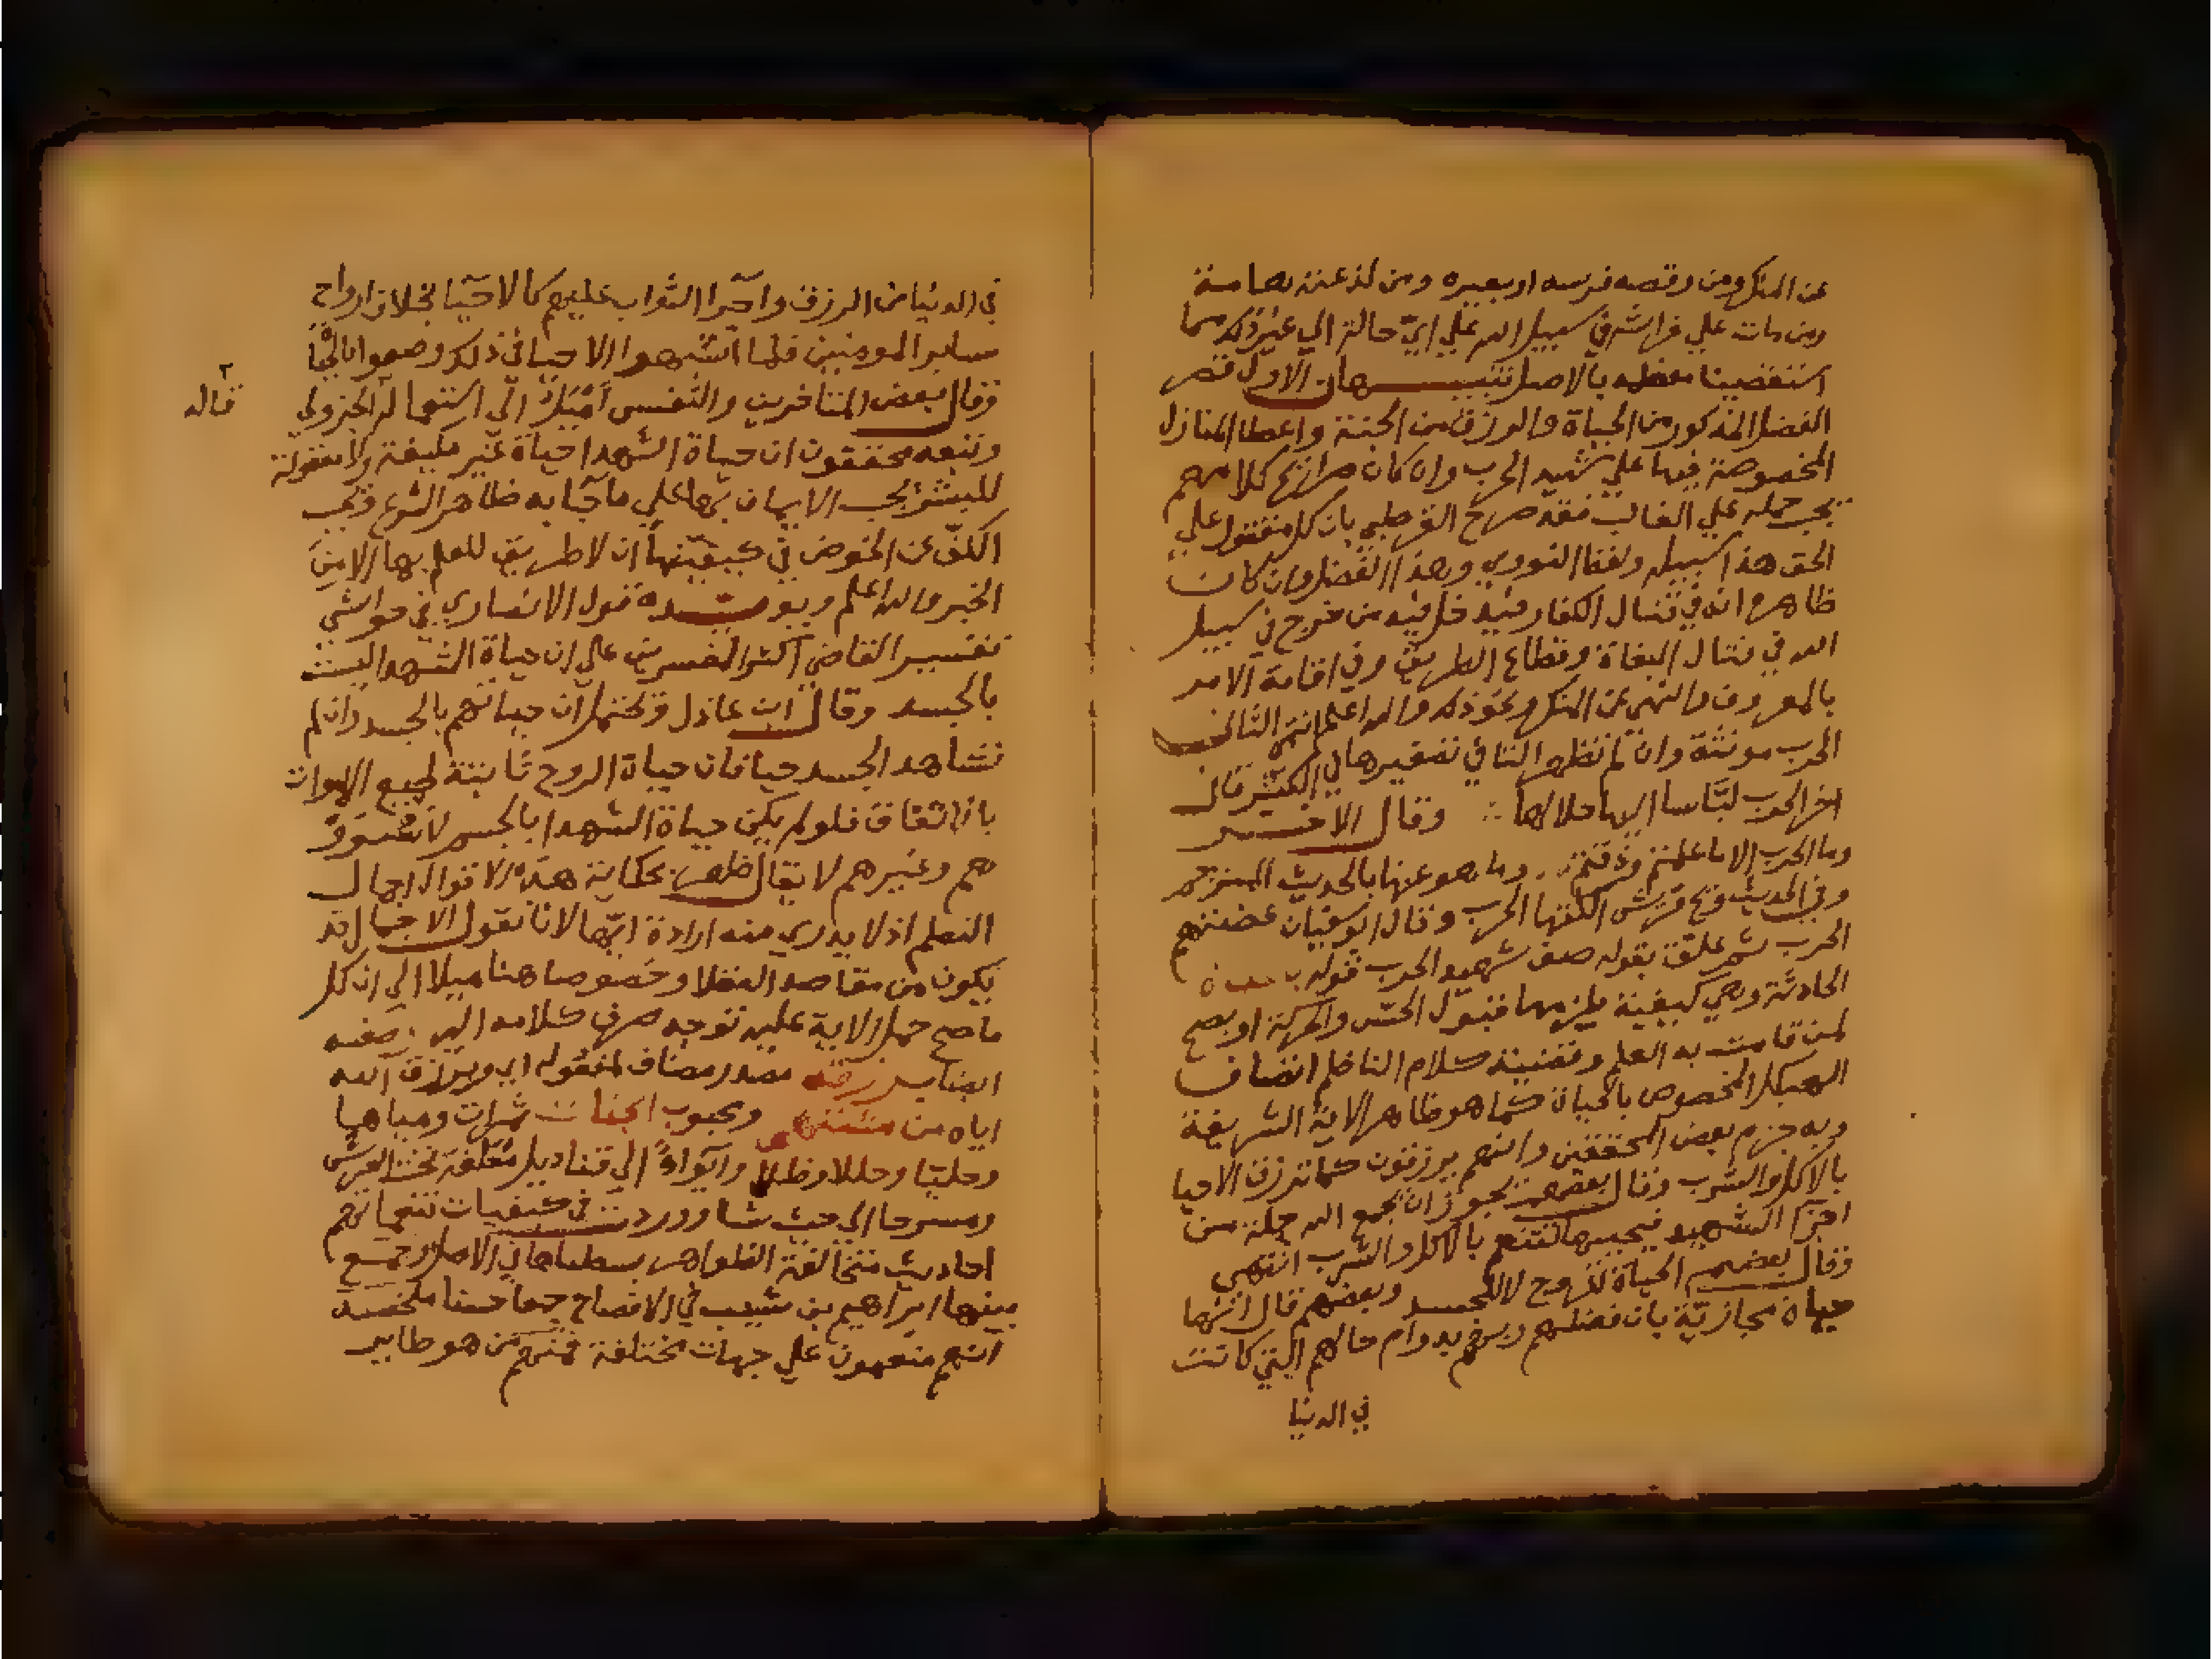 عن المنكر ومن وقصه فرسه او بعيره ومن لدغته هامة
ومن مات علي فراشه في سبيل الله علي اي حالة الي غير ذلك مما
استقصينا معظمه بالاصل تنبيهات الاول قصر
الفضل المذكور من الحياة والرزق من الجنة واعطا المنازل
المخصوصة فيها علي شهيد الحرب وان كان صرايح كلامهم
يجب حمله علي الغالب فقد صرح القرطبي بان كل مقتول علي
الحق هذا سبيله ولفظ النووي وهذا الفضل وان كان
ظاهره انه في قتال الكفار فيدخل فيه من خرج في سبيل
الله في قتال البغاة وقطاع الطريق وفي اقامة الامر
بالمعروف والنهي عن المنكر ونحو ذلك والله اعلم انتهي الثاني
الحرب مونثة وان لم تظهر التا في تصغيرها في الكثير قال
اخو الحرب لباسا اليها جلالها وقال الاخر
وما الحرب الا ما علمتم وذقتم وما هو عنها بالحديث المرجم
وفي الحديث ويح قريش اكلتها الحرب وقال ابو سفيان عضتهم
الحرب ثم علق بقوله صف شهيد الحرب قوله بالحياة
الحادثة وهي كيفية يلزمها قبول الحس والحركة او يصح
لمن قامت به العلم وقضية كلام الناظم اتصاف
الهيكل المخصوص بالحياة كما هو ظاهر الاية الشريفة
وبه جزم بعض المحققين وانهم يرزقون كما ترزق الاحيا
بالاكل والشرب وقال بعضهم يجوز ان يجمع الله جملة من
اجزا الشهيد فيحييها لتنعم بالاكل والشرب انتهي
وقال بعضهم الحياة للروح لا للجسد وبعضهم قال انها
حياة مجازية بان فضلهم ورزقهم بدوام حالهم التي كانت
في الدنيا
في الدنيا من الرزق واجرا الثواب عليهم كالاحيا بخلاف ارواح
ساير المومنين فلما اشبهوا الاحيا في ذلك وصفوا بالحياة
وقال بعض المتاخرين والنفس اميل الي استتمام الجزولي
قاله
وتبعه محققون ان حياة الشهدا حياة غير مكيفة ولا معقولة
للبشر يجب الايمان بها علي ما جا به ظاهر الشرع ويجب
الكف عن الخوض في كيفيتها ان لا طريق للعلم بها الا من
الخبر والله اعلم ويويده قول الانصاري في حواشي
تفسير القاضي اكثر المفسرين علي ان حياة الشهدا ليست
بالجسد وقال ابن عادل ويحتمل ان حياتهم بالجسد وان لم
نشاهد الجسد حيا فان حياة الروح ثابتة لجميع الاموات
بالاتفاق فلو لم يكن حياة الشهدا بالجسم لاستووا
هم وغيرهم لا يقال ظهر بحكاية هذه الاقوال اجمال
النظم اذ لا يدري منه ارادة ايها لانا نقول الاجمال قد
يكون من مقاصد العقلا وخصوصا هنا ميلا الي ان كل
ما صح حمل الاية عليه توجه صرف كلامه اليه وصفه
ايضا برزقه مصدر مضاف لمفعوله اي ويرزق الله
اياه من مشتهي ومحبوب الجنات ثمرات ومياها
وحليا وحللا وظلالا واكوابا الي قناديل معلقة تحت العرش
ومسرحا الي حيث شا ووردت في كيفيات تنعماتهم
احاديث متخالفة الظواهر بسطناها في الاصل وجمع
بينها ابراهيم بن شبيب في الافصاح جمعا حسنا ملخصه
انهم منعمون علي جهات مختلفة فمنهم من هو طاير